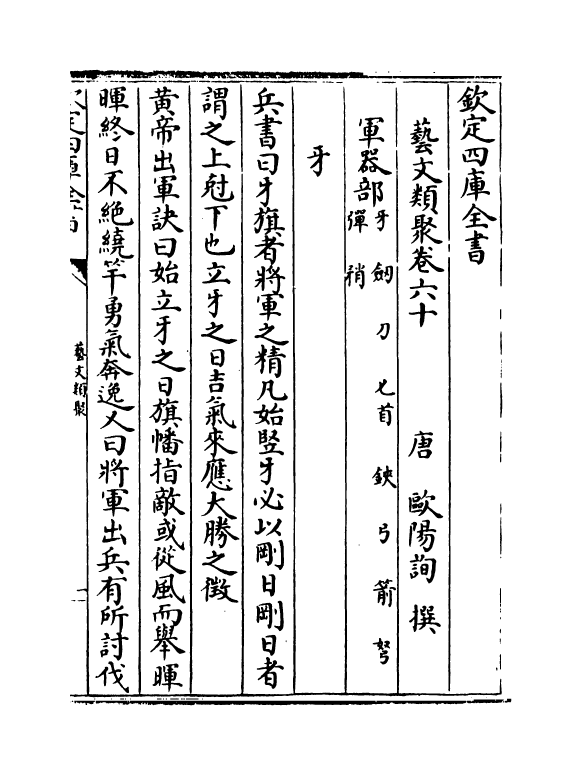 欽定四庫全書
藝文類聚卷六十
唐 歐陽詢 撰
軍器部 牙 劒 刀 匕首 鋏 弓 箭 弩
彈 矟
牙
兵書曰牙旗者將軍之精凡始竪牙必以剛日剛日者
謂之上尅下也立牙之日吉氣來應大勝之徴
黄帝出軍訣曰始立牙之日旗幡指敵或從風而舉暉
暉終日不絶繞竿勇氣奔逸又曰將軍出兵有所討伐
藝文類聚